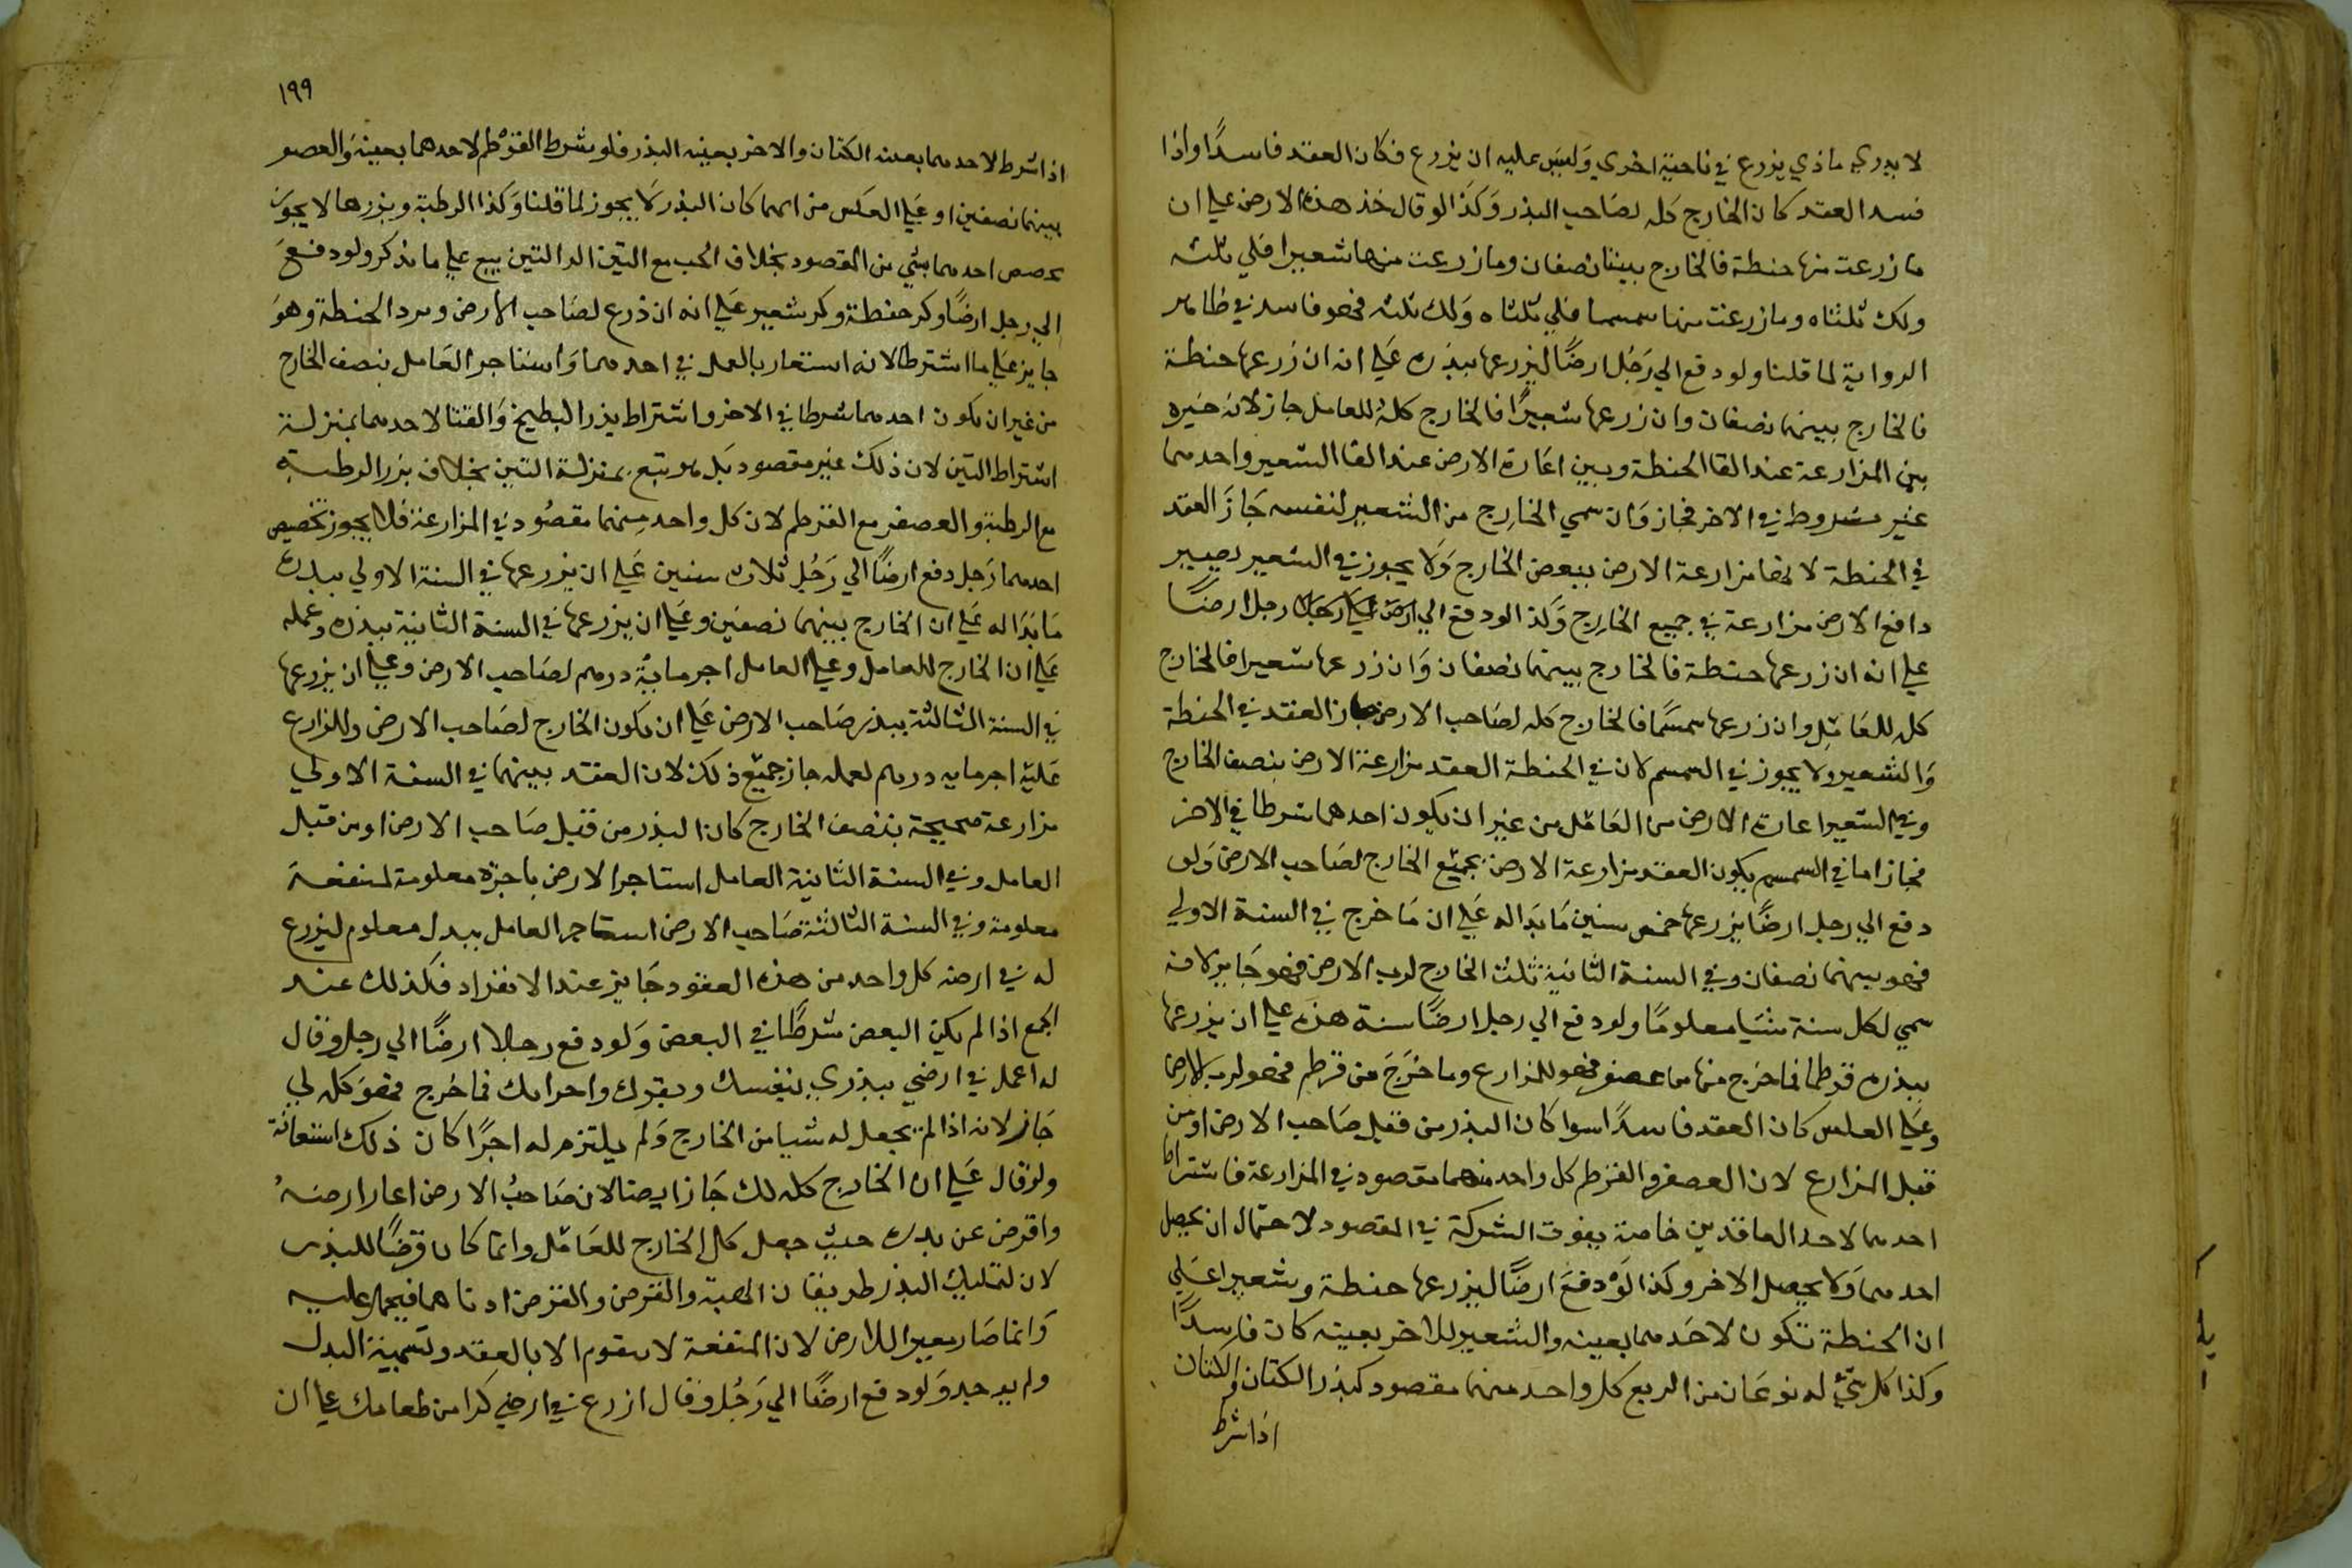 لا يدري ماذي يزرع في ناحية اخري وليس عليه ان يزرع فكان العقد فاسدًا واذا
فسد العقد كان الخارج كله لصاحب البذر وكذا لو قال خذ هذه الارض علي ان
ما زرعت منها حنطة فالخارج بيننا نصفان وما زرعت منها شعيرا فلي ثلثه
ولك ثلثاه وما زرعت منها سمسما فلي ثلثاه ولك ثلثه فهو فاسد في ظاهر
الرواية لما قلنا ولو دفع الي رجل ارضًا ليزرعها ببذره علي انه ان زرعها حنطة
فالخارج بينهما نصفان وان زرعها شعيرًا فالخارج كله للعامل جاز لانه خيره
بين المزارعة عند القا الحنطة وبين اعارة الارض عند القا الشعير واحدهما
غير مشروط في الاخر فجاز وان سمي الخارج من الشعير لنفسه جاز العقد
في الحنطة لانها مزارعة الارض ببعض الخارج ولا يجوز في الشعير يصير
دافع الارض مزارعة في جميع الخارج وكذا لو دفع الي رجل ارضًا
علي انه ان زرعها حنطة فالخارج بينهما نصفان وان زرعها شعيرا فالخارج
كله للعامل وان زرعها سمسمًا فالخارج كله لصاحب الارض جاز العقد في الحنطة
والشعير ولا يجوز في السمسم لان في الحنطة العقد مزارعة الارض بنصف الخارج
وفي الشعير اعارة الارض من العامل من غير ان يكون احدهما شرطا في الاخر
فجاز اما في السمسم يكون العقد مزارعة الارض بجميع الخارج لصاحب الارض ولو
دفع الي رجل ارضًا يزرعها خمس سنين ما بدا له علي ان ما خرج في السنة الاولي
فهو بينهما نصفان وفي السنة الثانية ثلث الخارج لرب الارض فهو جايز لانه
سمي لكل سنة شيا معلومًا ولو دفع الي رجل ارضًا سنة هذه علي ان يزرعها
ببذره قرطما فما خرج منها من عصفر فهو للمزارع وما خرج من قرطم فهو لرب الارض
وعلي العكس كان العقد فاسدًا سوا كان البذر من قبل صاحب الارض او من
قبل المزارع لان العصفر والقرطم كل واحد منهما مقصود في المزارعة فاشتراط
احدهما لاحد العاقدين خاصة يفوت الشركة في المقصود لاحتمال ان يحصل
احدهما ولا يحصل الاخر وكذا لو دفع ارضًا ليزرعها حنطة وشعيرا علي
ان الحنطة تكون لاحدهما بعينه والشعير للاخر بعينه كان فاسدًا
وكذا كل شيء له نوعان من الريع كل واحد منهما مقصود كبذر الكتان والكتان
اذا شرط
١٩٩
اذا شرط لاحدهما بعينه الكتان والاخر بعينه البذر فلو شرط القرطم لاحدهما بعينه والعصفر
بينهما نصفين او علي العكس من ايهما كان البذر لا يجوز لما قلنا وكذا الرطبة وبزرها لا يجوز
تخصيص احدهما بشي من المقصود بخلاف الحب مع التبن علي ما نذكر ولو دفع
الي رجل ارضًا وكر حنطة وكر شعير علي انه ان زرع لصاحب الارض ويرد الحنطة وهو
جايز علي ما اشترطا لانه استعار بالعمل في احدهما واستاجر العامل بنصف الخارج
من غير ان يكون احدهما شرطا في الاخر واشتراط بذر البطيخ والقثا لاحدهما بمنزلة
اشتراط التبن لان ذلك غير مقصود بل هو تبع بمنزلة التبن بخلاف بزر الرطبة
مع الرطبة والعصفر مع القرطم لان كل واحد منهما مقصود في المزارعة فلا يجوز تخصيص
احدهما رجل دفع ارضًا الي رجل ثلاث سنين علي ان يزرعها في السنة الاولي ببذره
ما بدا له علي ان الخارج بينهما نصفين وعلي ان يزرعها في السنة الثانية ببذره وعمله
علي ان الخارج للعامل وعلي العامل اجر ماية درهم لصاحب الارض وعلي ان يزرعها
في السنة الثالثة ببذر صاحب الارض علي ان يكون الخارج لصاحب الارض وللزارع
عليه اجر مايه درهم لعمله جاز جميع ذلك لان العقد بينهما في السنة الاولي
مزارعة صحيحة بنصف الخارج كان البذر من قبل صاحب الارض او من قبل
العامل وفي السنة الثانية العامل استاجر الارض باجرة معلومة لمنفعة
معلومة وفي السنة الثالثة صاحب الارض استاجر العامل ببدل معلوم ليزرع
له في ارضه كل واحد من هذه العقود جايز عند الانفراد فكذلك عند
الجمع اذا لم يكن البعض شرطًا في البعض ولو دفع رجل ارضًا الي رجل وقال
له اعمل في ارضي ببذري بنفسك وبقرك واجرايك فما خرج فهو كله لي
جاز لانه اذا لم يجعل له شيا من الخارج ولم يلتزم له اجرًا كان ذلك استعانة
ولو قال علي ان الخارج كله لك جاز ايضا لان صاحب الارض اعار ارضه
واقرض عن بذره حيث جعل كل الخارج للعامل وانما كان قرضًا للبذر
لان لتمليك البذر طريقان الهبة والقرض والقرض ادناهما فيحمل عليه
وانما صار معيرا للارض لان المنفعة لا تقوم الا بالعقد وتسمية البدل
ولم يوجد ولو دفع ارضًا الي رجل وقال ازرع في ارضي كرا من طعامك علي ان